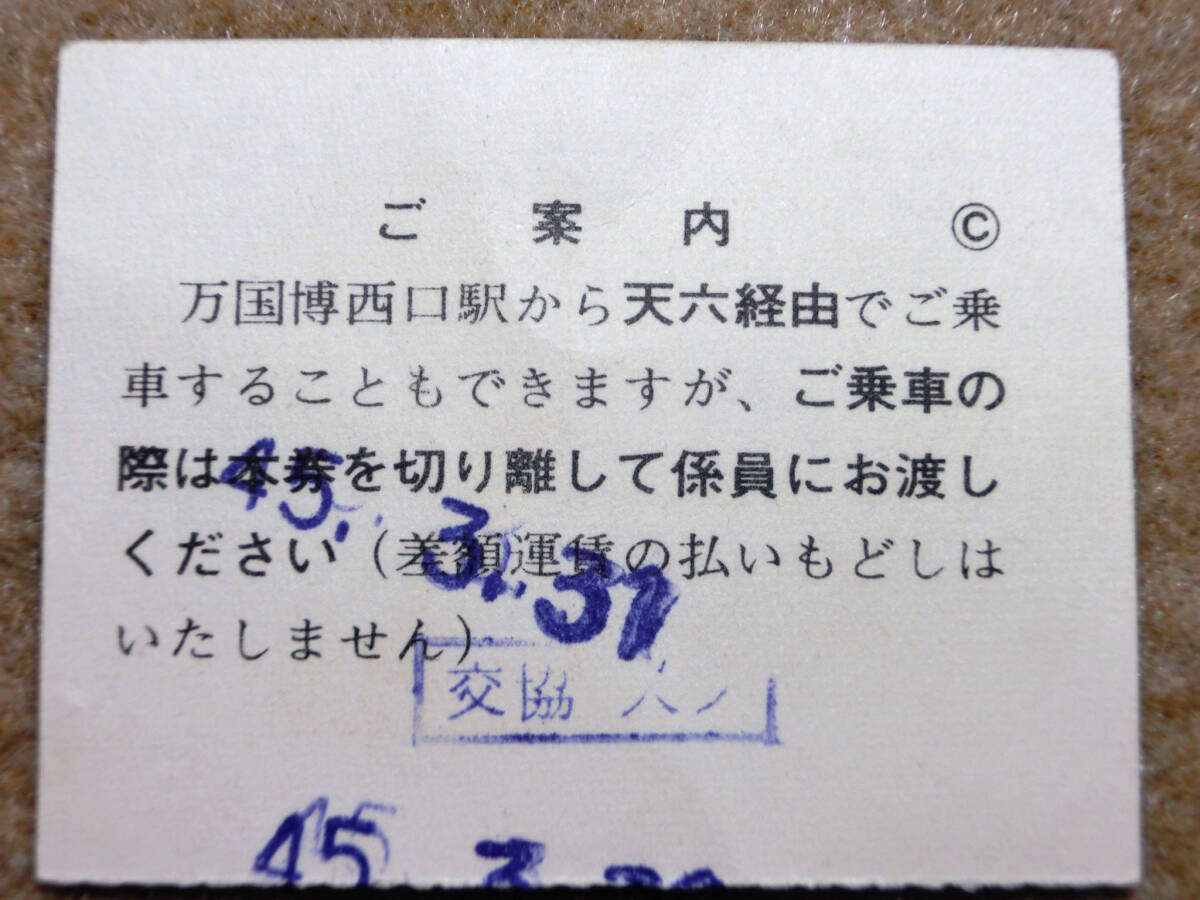 ご案内 ©
万国博西口駅から天六経由でご乗
車することもできますが、ご乗車の
際は本券を切り離して係員にお渡し
ください（差額運賃の払いもどしは
いたしません）
45. 3. 31
交協
45 3